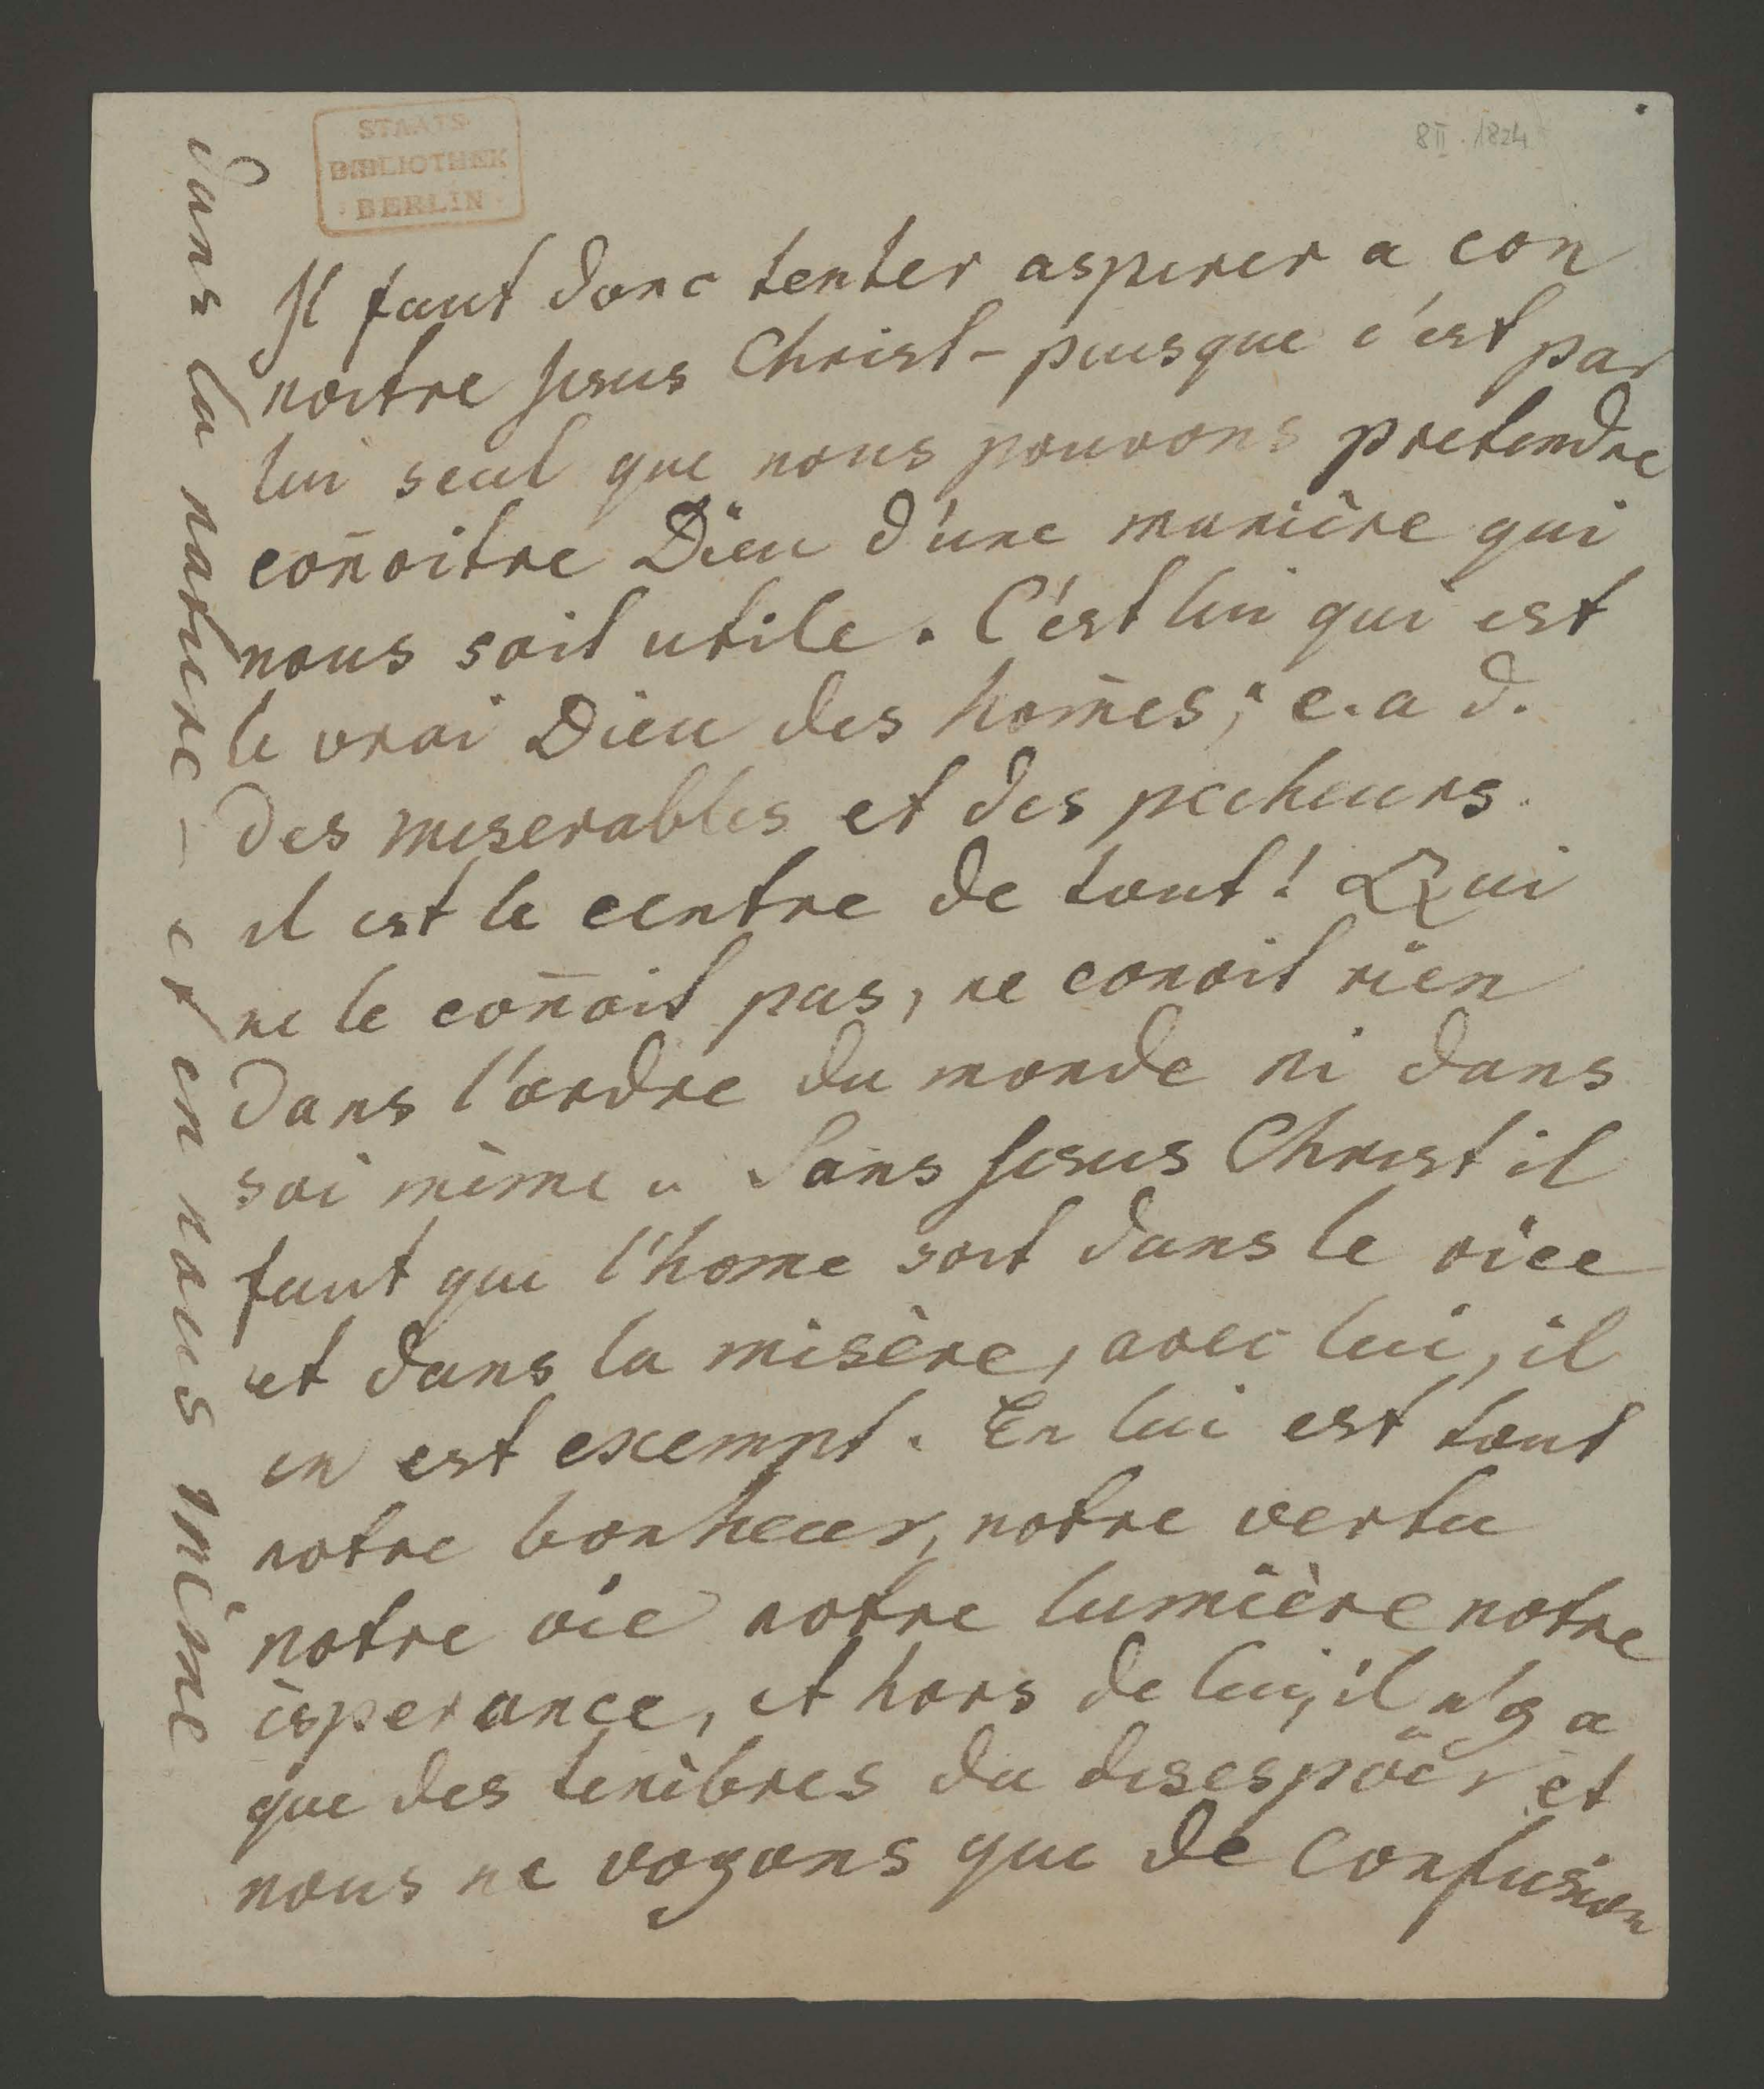 STAATS-
BIBLIOTHEK
· BERLIN ·
8 II. 1824
Il faut donc tenter aspirer a con
noitre Jesus Christ - puisque c'est par
lui seul que nous pouvons pretendre
con̄oitre Dieu d'une manière qui
nous soit utile. C'est lui qui est
le vrai Dieu des hom̄es; c. a d.
des miserables et des pecheurs.
il est le centre de tout! Qui
ne le con̄oit pas, ne conoit rien
dans l'ordre du monde ni dans
soi même. Sans Jesus Christ il
faut que l'home soit dans le vice
et dans la misère, avec lui, il
en est exempt. En lui est tout
notre bonheur, notre vertu
notre vie notre lumière notre
ésperance, et hors de lui, il n'y a
que des tenèbres du desespoir et
nous ne voyons que de confusion
dans la nature - et en nous même